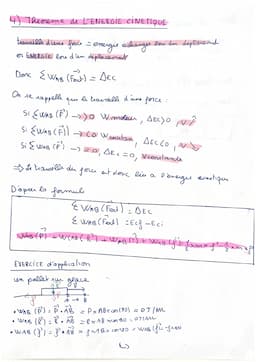 4) Théorème de L'ENERGIE CINETIQUE
travail d'une force = énergie échangée lors d'un déplacement
et énergie lors d'un déplacement
Donc Σ WAB (Fext) = ΔEc
On se rappelle que le travail d'une force :
Si Σ WAB (F) → >0 W moteur, ΔEc>0, v ↗
Si Σ WAB (F) → <0 W résistant, ΔEc<0, v ↘
Si Σ WAB (F) → =0, ΔEc=0, v constante
⇒ Le travail des forces est donc lié à l'énergie cinétique
D'après la formule
Σ WAB (Fext) = ΔEc
Σ WAB (Fext) = Ecf - Eci
WAB (P) + WAB (R) + WAB (f)
EXERCICE d'application
un palet sur glace
• WAB (P) = P . AB = P x AB cos(90) = 0J
• WAB (R) = R . AB = R x AB cos 90 = 0J
• WAB (f) = f . AB =